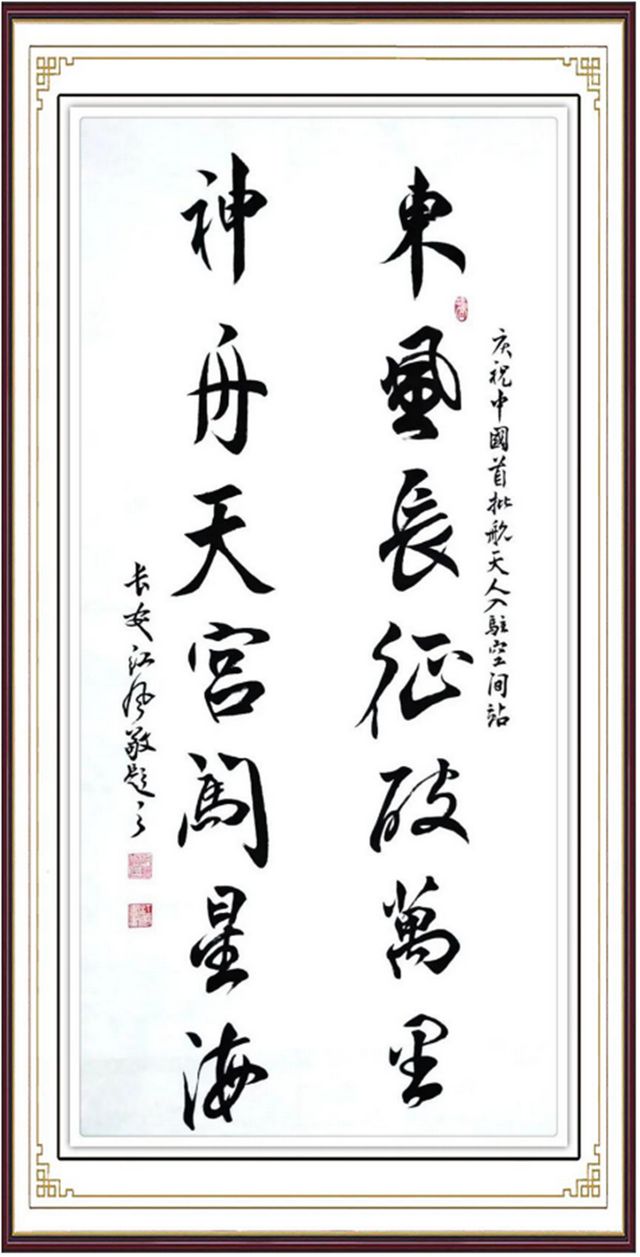 庆祝中國首批航天人入駐空间站
東風長征破萬里
神舟天宮闖星海
长安江風敬题之